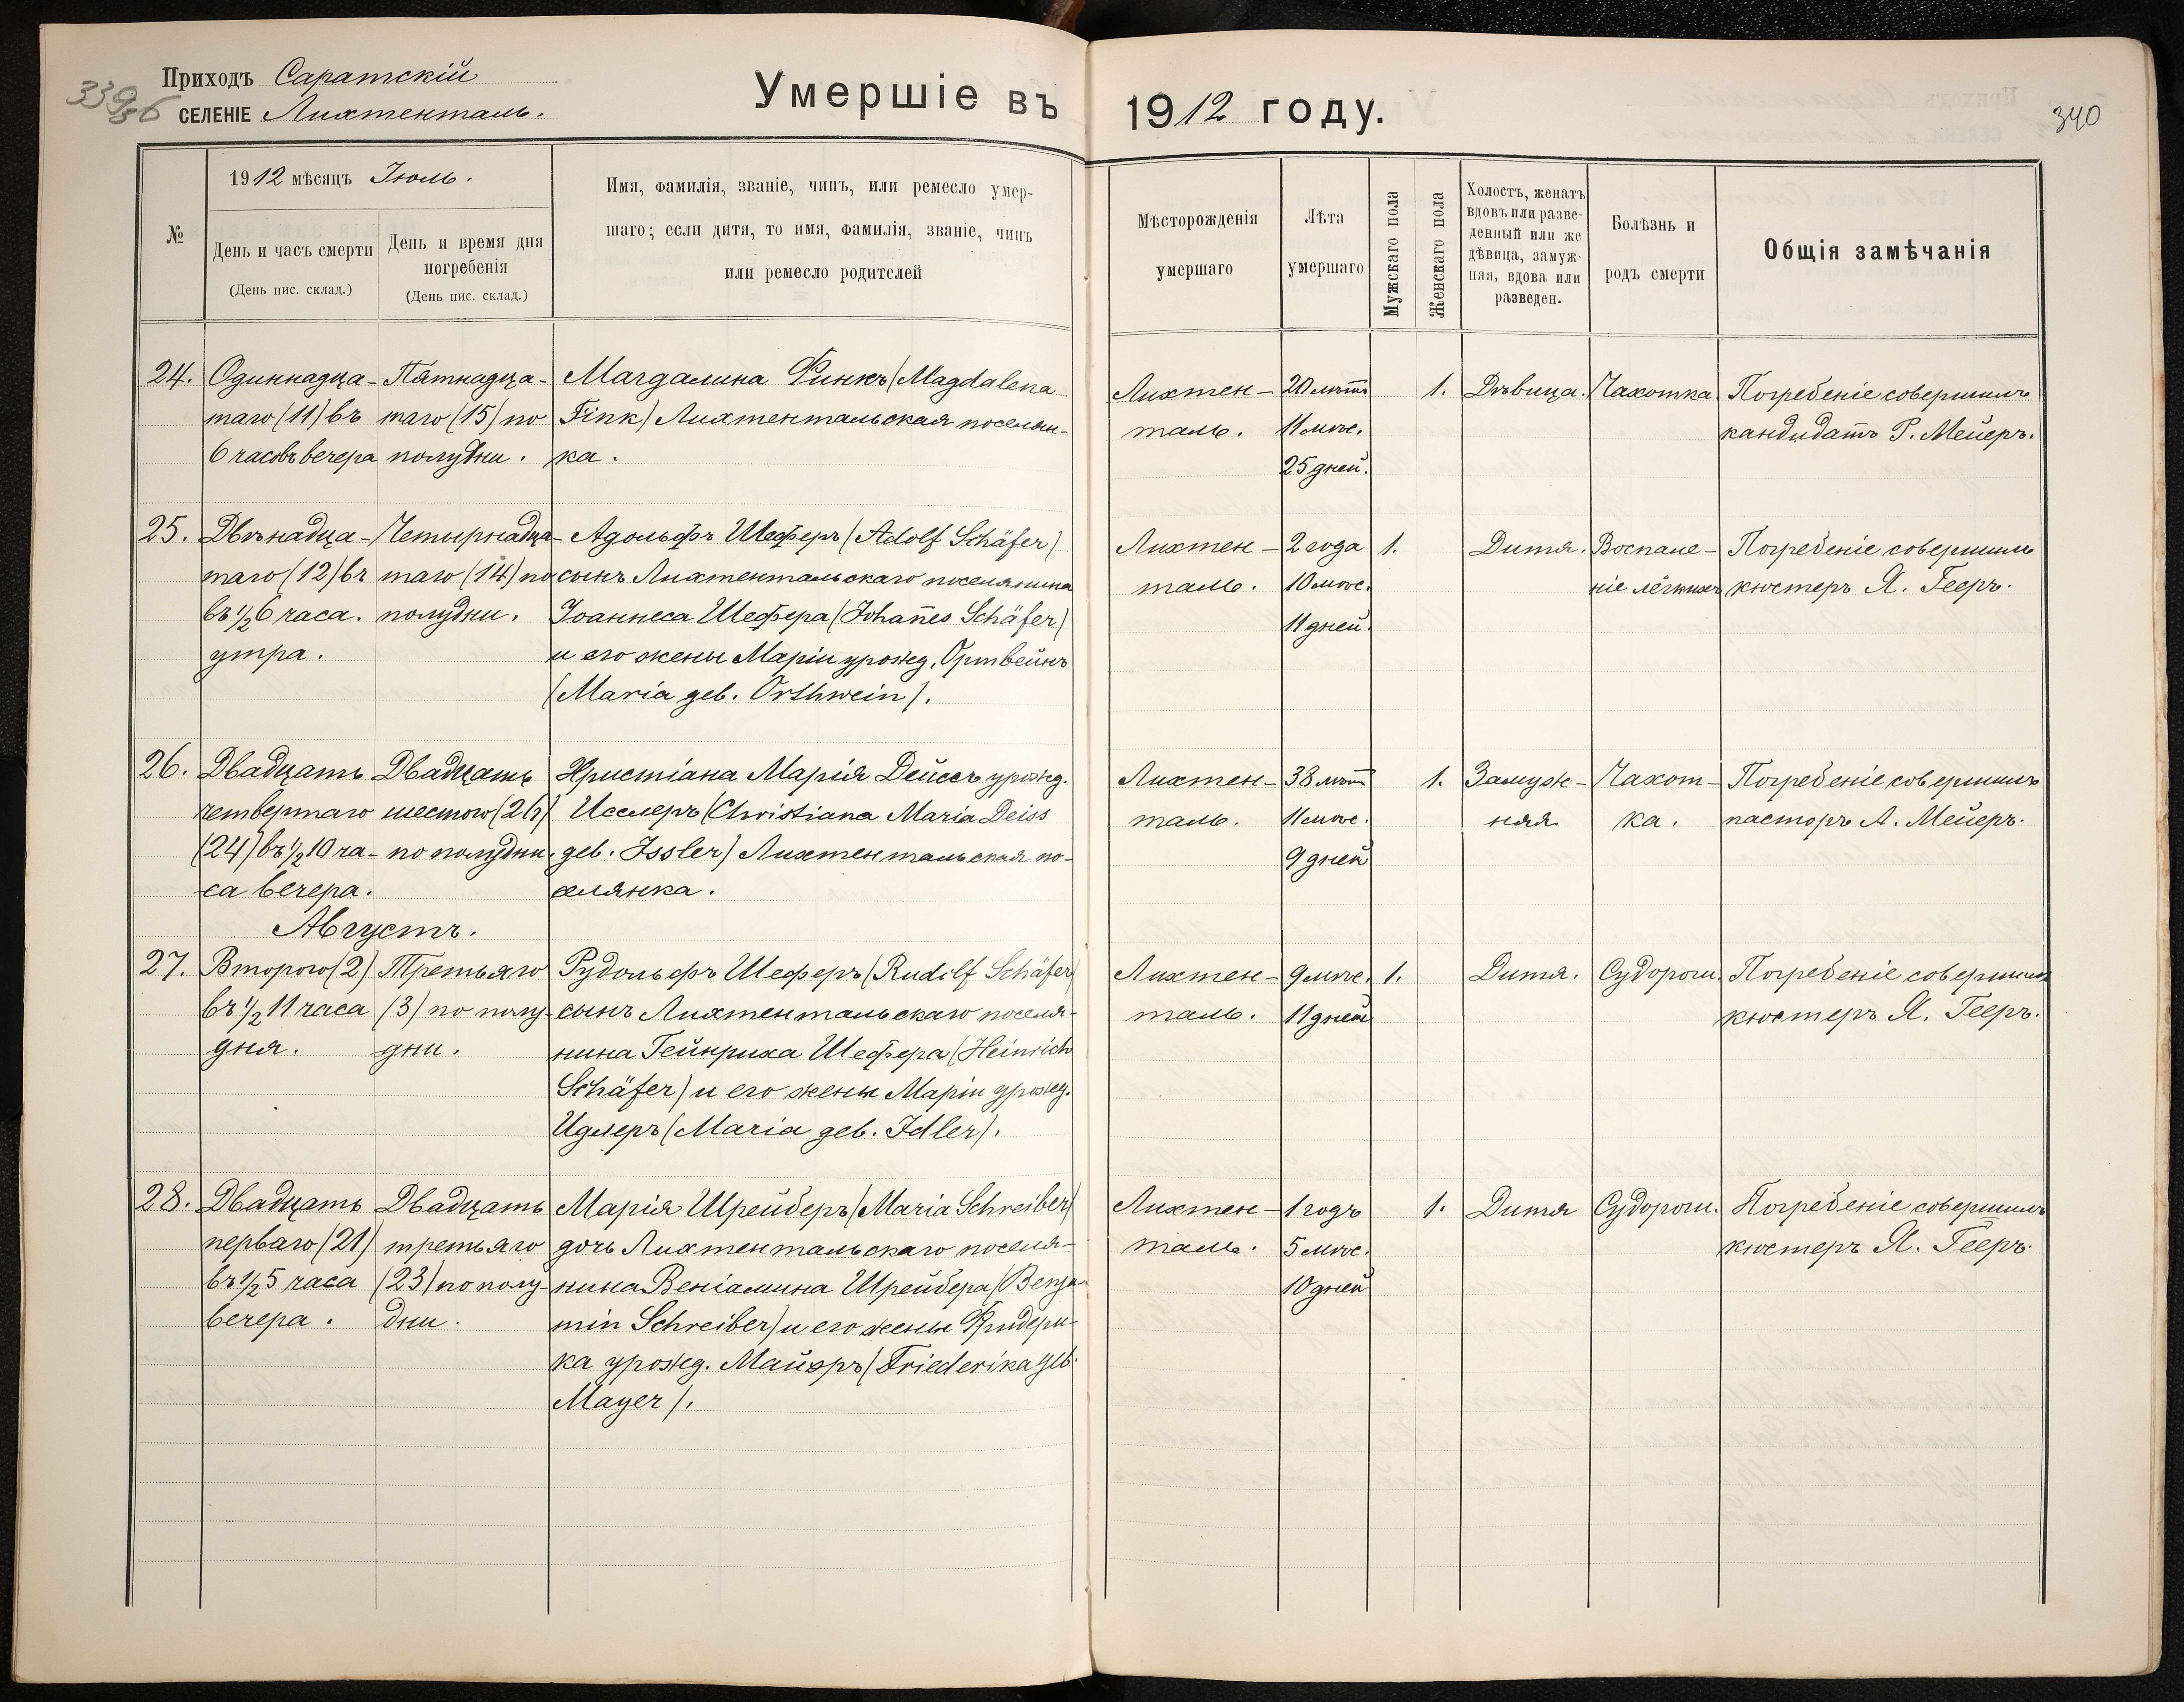 Приходъ Саратскій
339об
СЕЛЕНІЕ Лихтенталь.
Умершіе въ 1912 году.
340
№
1912 мѣсяцъ Іюль.
День и часъ смерти
(День пис. склад.)
День и время дня
погребенія
(День пис. склад.)
Имя, фамилія, званіе, чинъ, или ремесло умер-
шаго; если дитя, то имя, фамилія, званіе, чинъ
или ремесло родителей
Мѣсторожденія
умершаго
Лѣта
умершаго
Мужскаго пола
Женскаго пола
Холостъ, женатъ
вдовъ или разве-
денный или же
дѣвица, замуж-
няя, вдова или
разведен.
Болѣзнь и
родъ смерти
Общія замѣчанія
24.
Одиннадца-
таго (11) въ
6 часовъ вечера
Пятнадца-
таго (15) по
полудни.
Магдалина Финкъ (Magdalena
Fink) Лихтентальская поселян-
ка.
Лихтен-
таль.
20 лѣтъ
11 мѣс.
25 дней.
1.
Дѣвица.
Чахотка.
Погребеніе совершилъ
кандидатъ Р. Мейеръ.
25.
Двѣнадца-
таго (12) въ
въ ½6 часа.
утра.
Четырнадца-
таго (14) по
полудни.
Адольфъ Шеферъ (Adolf Schäfer)
сынъ Лихтентальскаго поселянина
Іоаннеса Шефера (Joha͞nes Schäfer)
и его жены Маріи урожд. Ортвейнъ
(Maria geb. Orthwein).
Лихтен-
таль.
2 года
10 мѣс.
11 дней.
1.
Дитя.
Воспале-
ніе лёгкихъ
Погребеніе совершилъ
кюстеръ Я. Гееръ.
26.
Двадцать
четвертаго
(24) въ ½10 ча-
са вечера.
Двадцать
шестого (26)
по полудни.
Христіана Марія Дейссъ урожд.
Исслеръ (Christiana Maria Deiss
geb. Issler) Лихтентальская по-
селянка.
Лихтен-
таль.
38 лѣтъ
11 мѣс.
9 дней
1.
Замуж-
няя
Чахот-
ка.
Погребеніе совершилъ
пасторъ А. Мейеръ.
Августъ.
27.
Второго (2)
въ ½11 часа
дня.
Третьяго
(3) по полу-
дни.
Рудольфъ Шеферъ (Rudolf Schäfer)
сынъ Лихтентальскаго поселя-
нина Гейнриха Шефера (Heinrich
Schäfer) и его жены Маріи урожд.
Идлеръ (Maria geb. Idler).
Лихтен-
таль.
9 мѣс.
11 дней
1.
Дитя.
Судороги.
Погребеніе совершилъ
кюстеръ Я. Гееръ.
28.
Двадцать
перваго (21)
въ ½5 часа
вечера.
Двадцать
третьяго
(23) по полу-
дни.
Марія Шрейберъ (Maria Schreiber)
дочь Лихтентальскаго поселя-
нина Веніамина Шрейбера (Benja-
min Schreiber) и его жены Фридери-
ка урожд. Майэръ (Friederika geb.
Mayer).
Лихтен-
таль.
1 годъ
5 мѣс.
10 дней
1.
Дитя
Судороги.
Погребеніе совершилъ
кюстеръ Я. Гееръ.